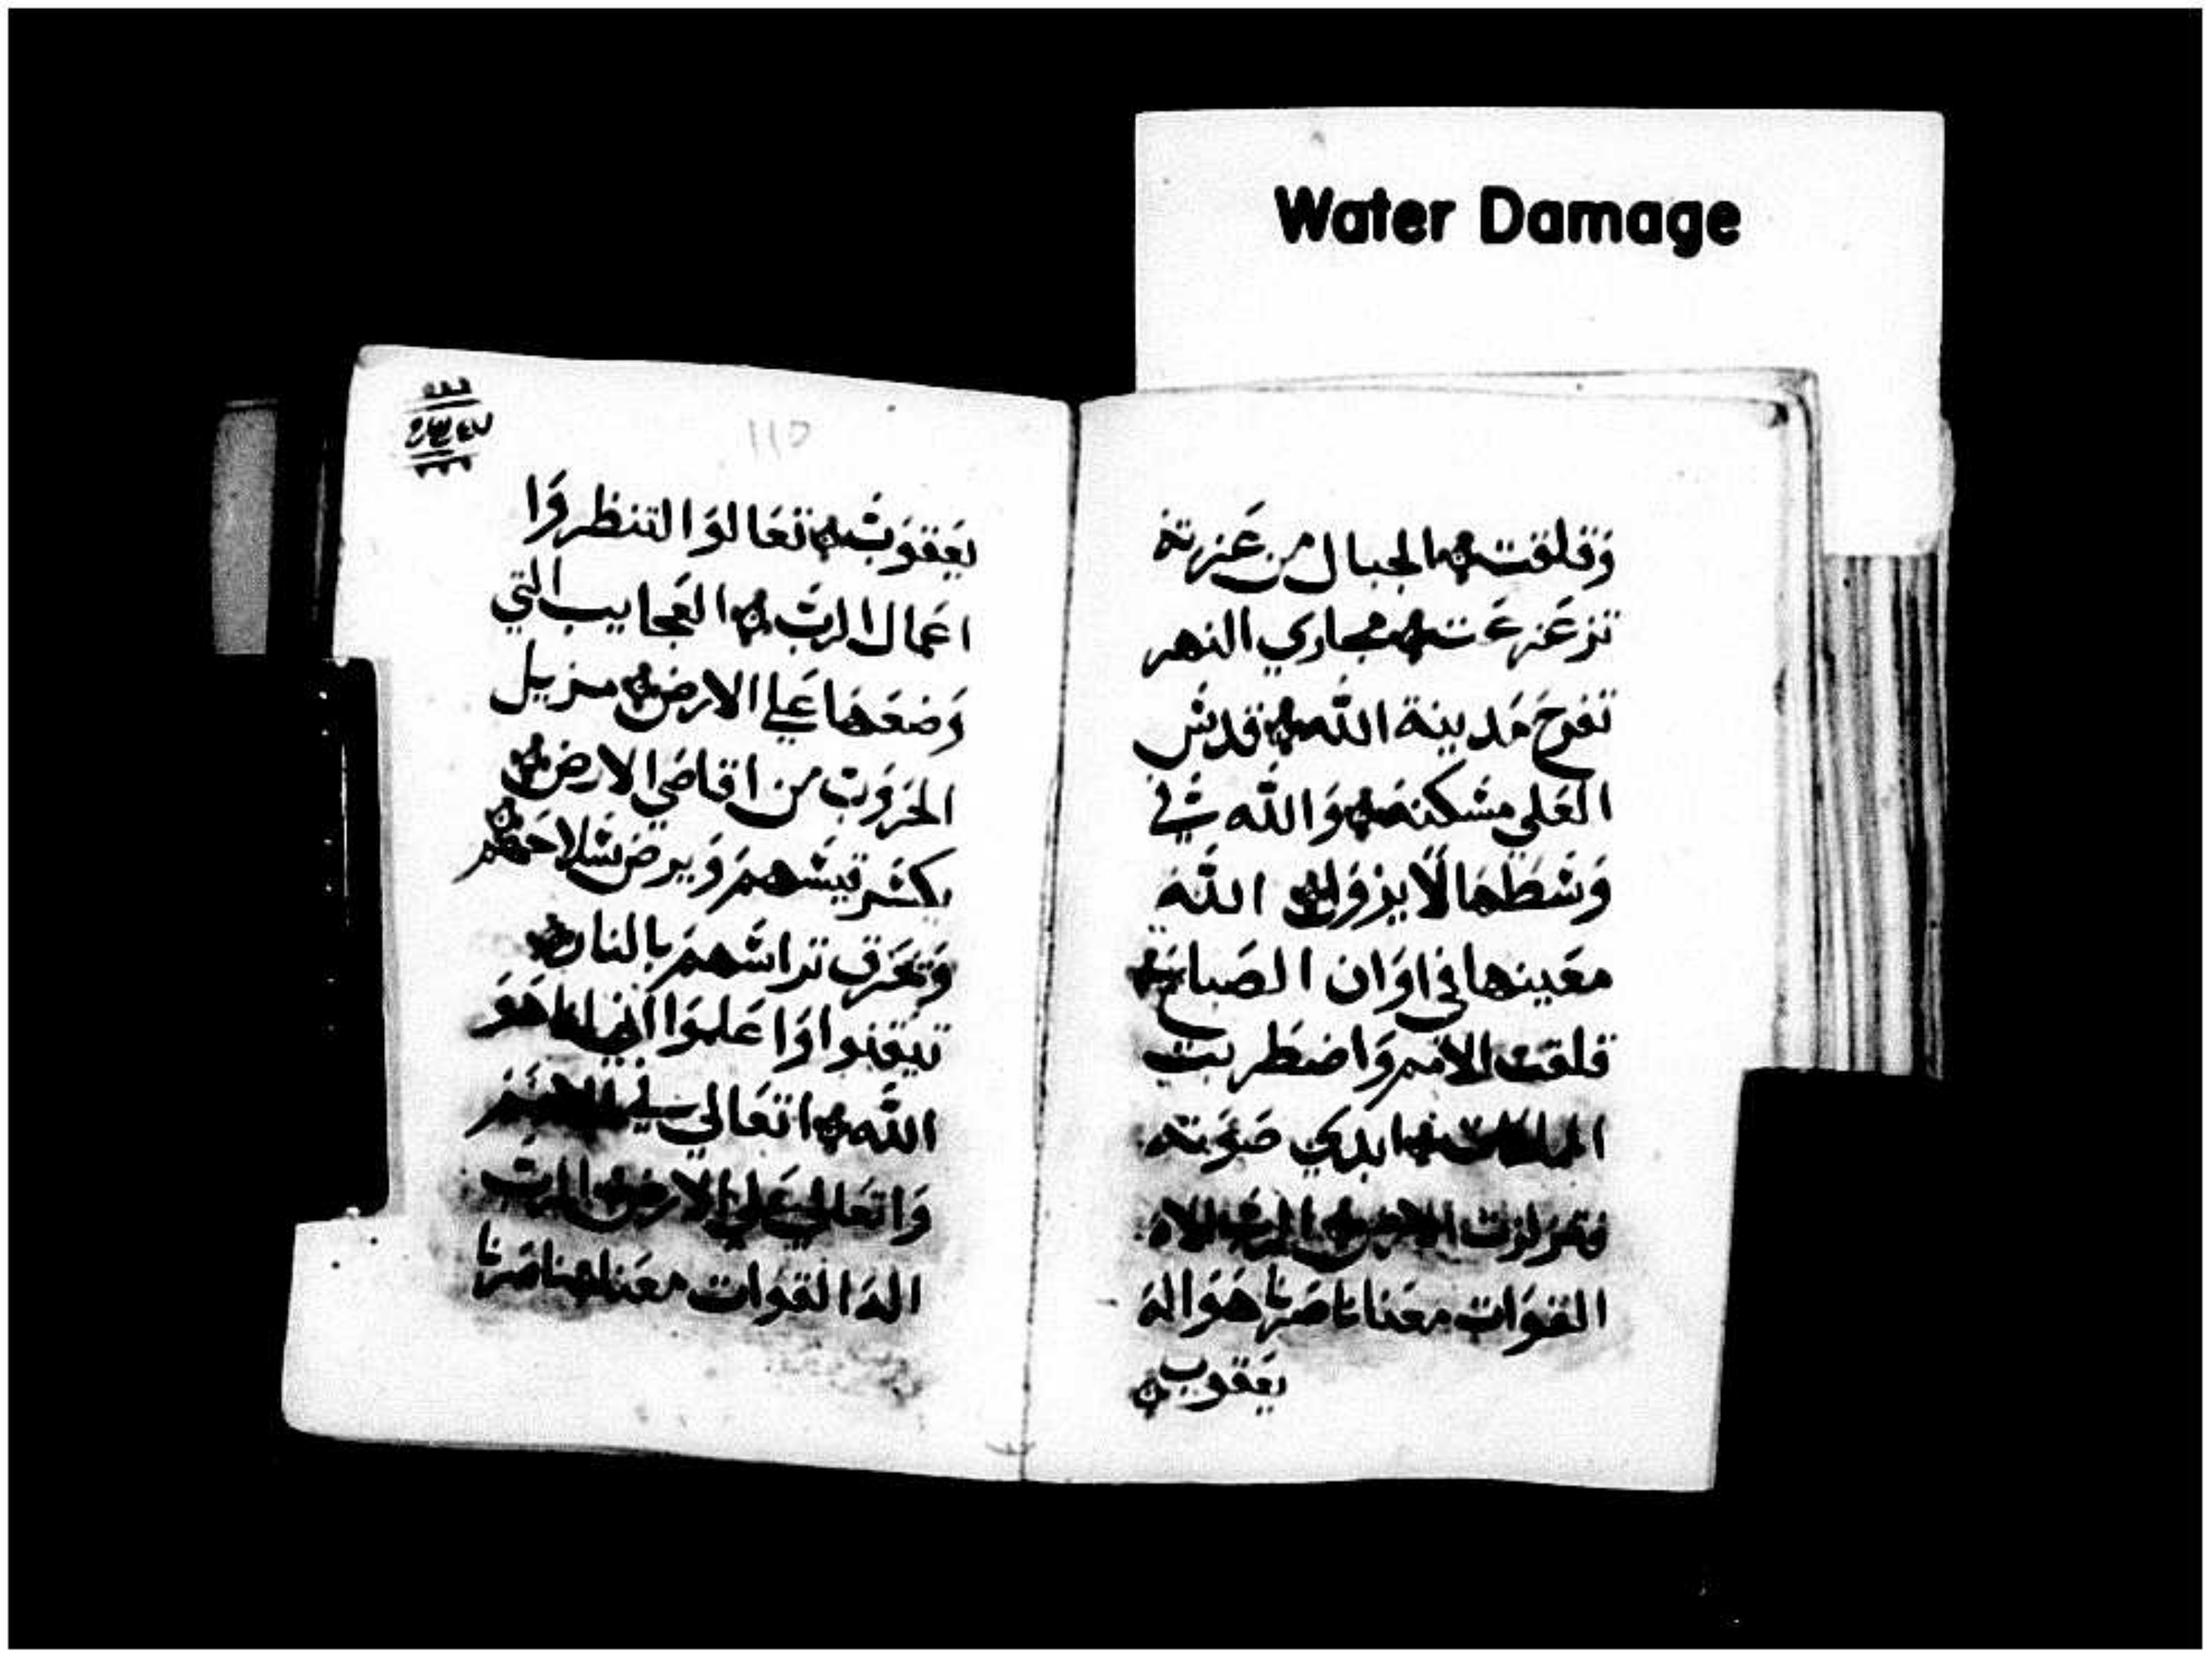 Water Damage
وَقلقت الجبال من عَزته
تزعَزعَت مجاري النهر
تفرحَ مَدينة الله قدسَ
العَلي مسَكنهَ وَالله في
وَسَطهَا لَا يزوَل اللهَ
معَينها في اوَان الصبَاح
قلقت الامم وَاضطَربت
ابدي صَوَته
القوَات معَنا ناصَرنا هوَ الهَ
يَعقوب
110
يَعقوَب تعَالوَا لتنظروَا
اعَمال الرب العَجايب التي
وَضعَهَا عَلي الارض مزيل
الحَروَب من اقاصَي الارض
يكسَر قيسَهم وَيرض سَلاحَهم
وَيحَرق تراسَهم بالنار
تيقنوا وَاعَلموَا اني انا هوَ
الله اتعَالي في
وَاتعَالي عَلي الارض الرب
الهَ القوَات معَنا ناصَرنا